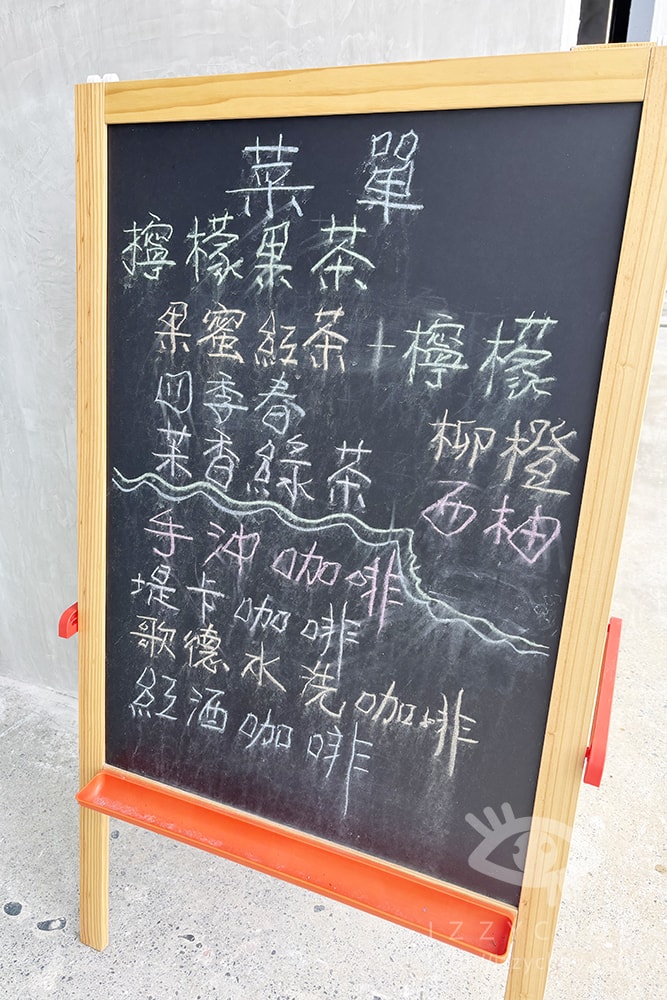 菜單
檸檬果茶
果蜜紅茶+檸檬
四季春
柳橙
茉香綠茶
西柚
手沖咖啡
堤卡咖啡
歌德水洗咖啡
紅酒咖啡